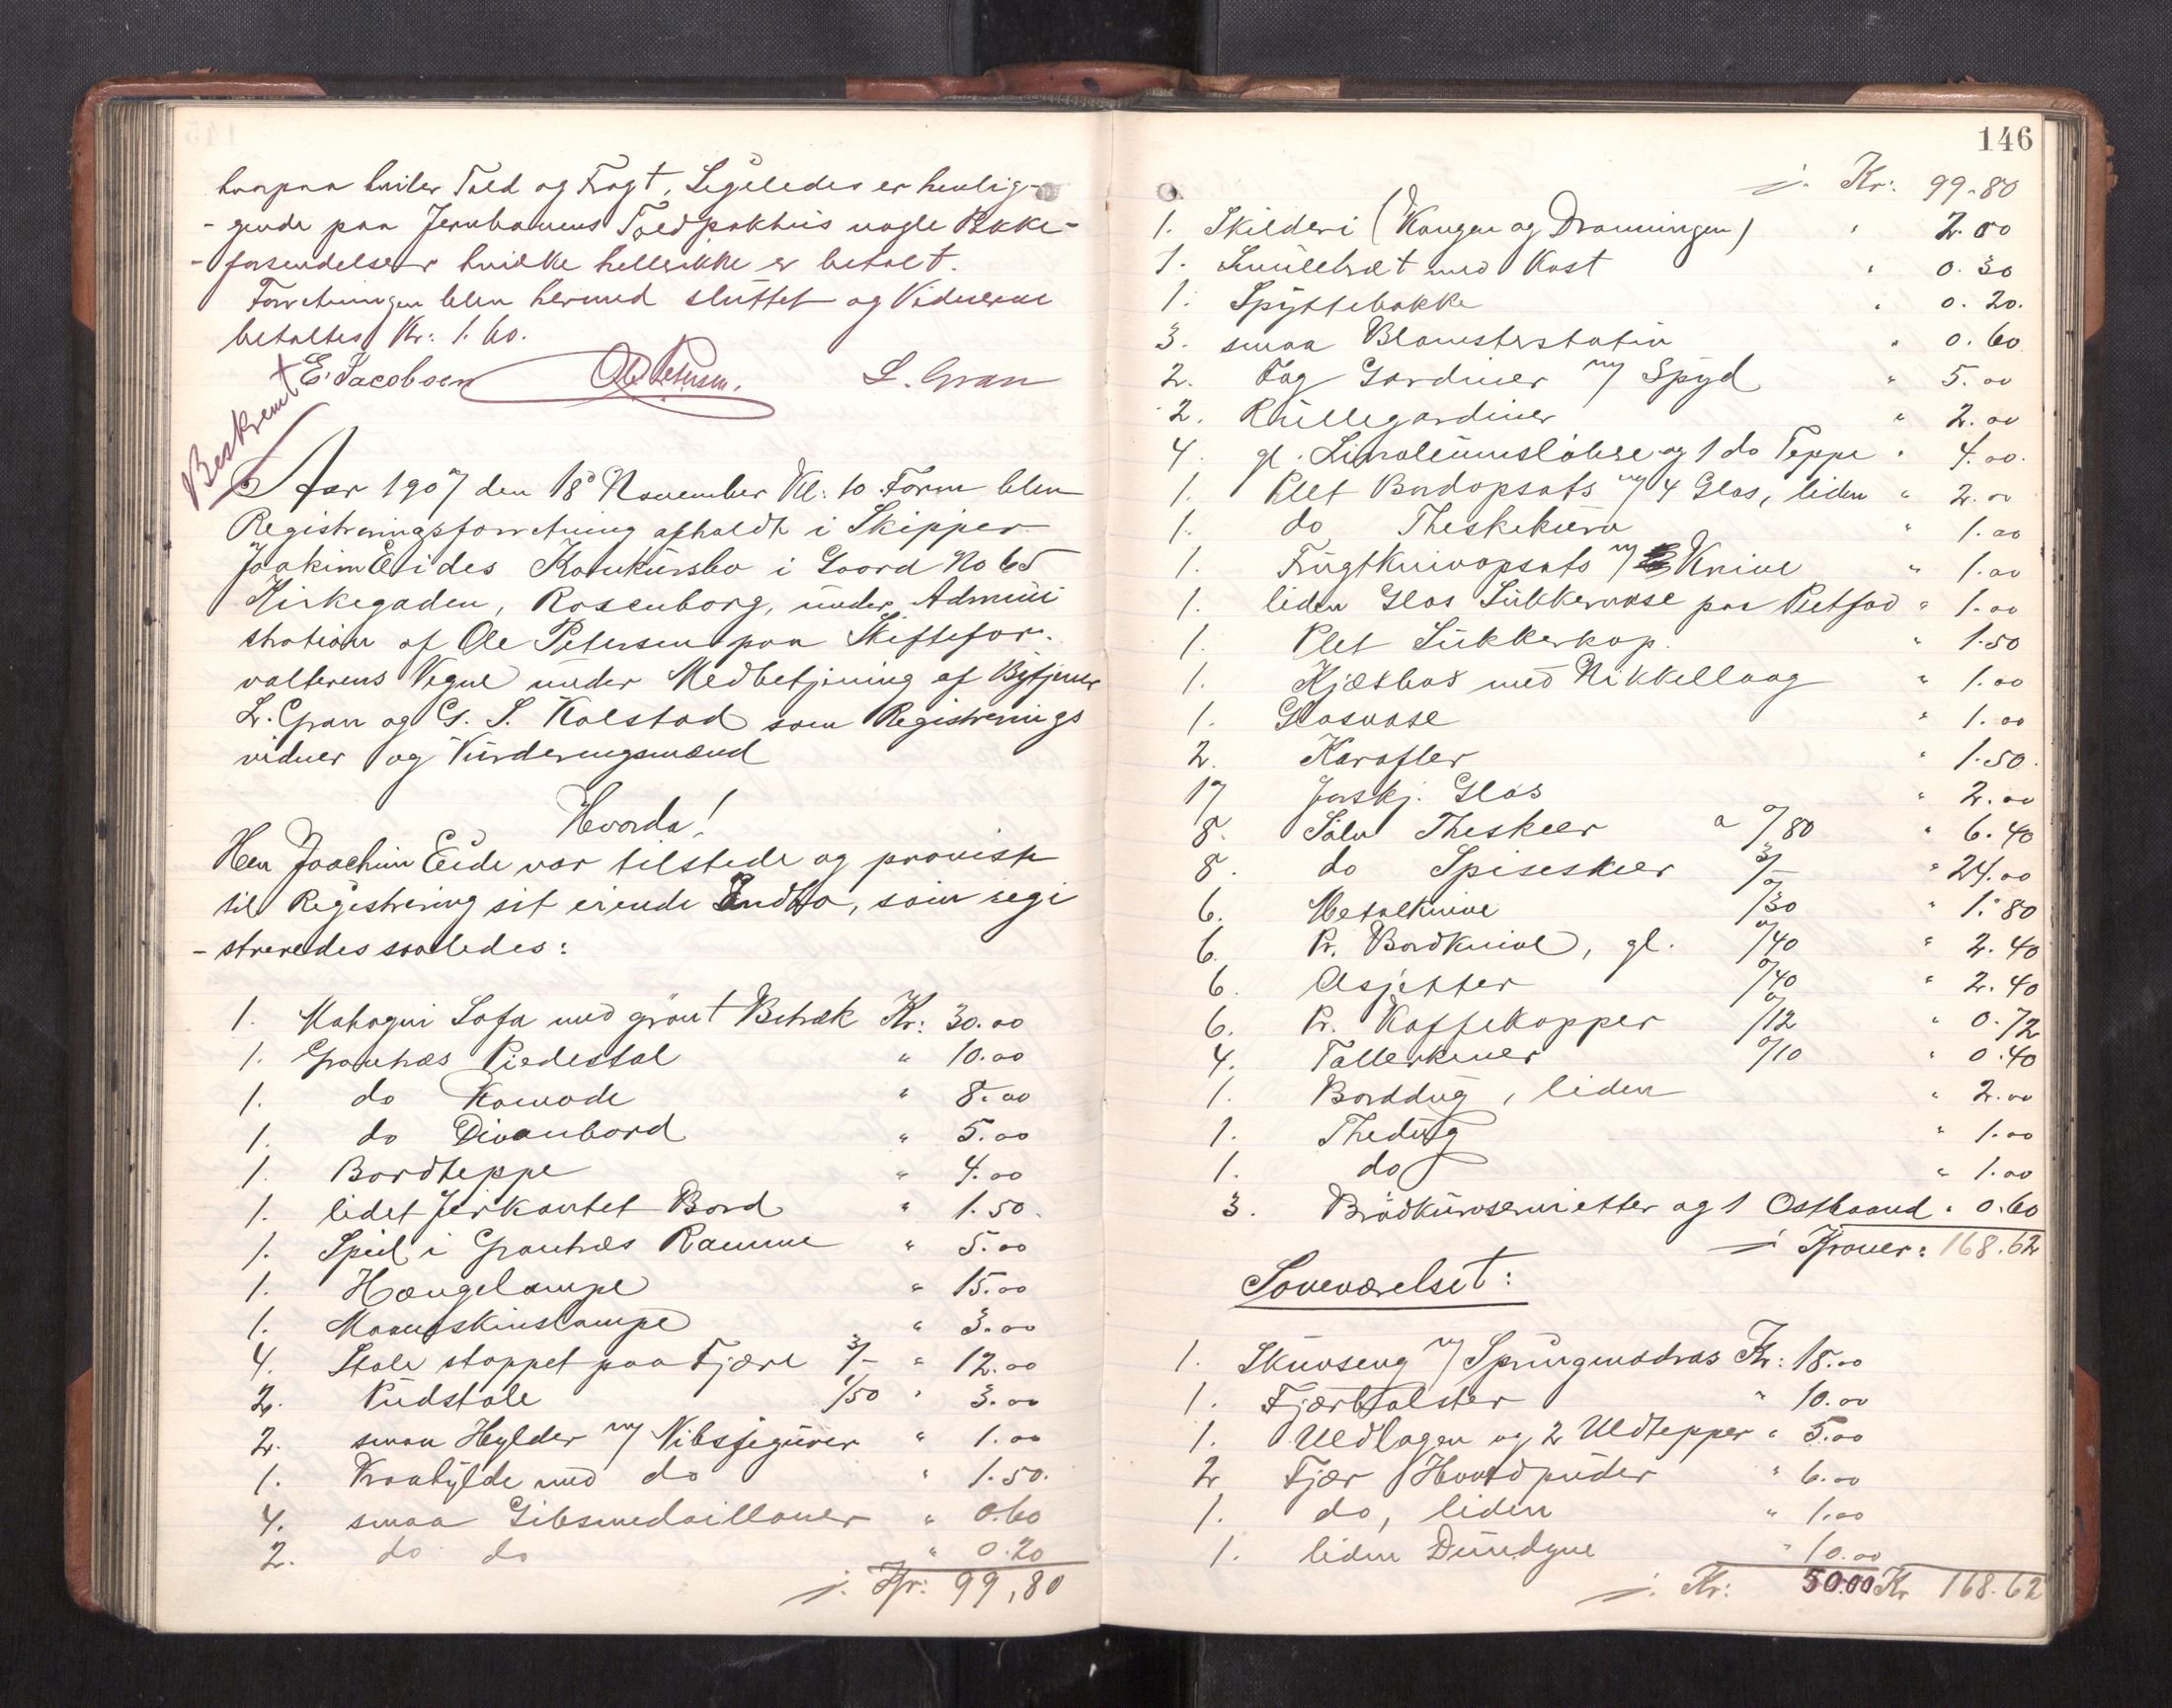 hvorpaa hviler Told og Fragt. Ligeledes er henlig-
- gende paa Jernbanens Toldpakhus nogle Pakke-
- forsendelser hvilke hellerikke er betalt.
Forretningen blev hermed sluttet og Vidnerne
betaltes Kr: 1.60.
E. Jacobsen Ole Petersen. L. Gran
Beskrevet
Aar 1907 den 18 November Kl: 10 Form blev
Registreringsforretning afholdt i Skipper
Joakim Eides Konkursbo i Gaard No 65
Kirkegaden, Rosenborg, under Admini
stration af Ole Petersen paa Skiftefor-
valterens Vegne under Medbetjening af Bytjener
L. Gran og G. S. Kolstad som Registrerings
vidner og Vurderingsmænd
Hvorda!
Herr Joachim Eide var tilstede og paaviste
til Registrering sit eiende Indbo, som regi
- streredes saaledes:
1. Mahogni Sofa med grønt Betræk Kr: 30.00
1. Grantræs Piedestal " 10.00
1. do Komode " 8.00
1. do Divanbord " 5.00
1. Bordteppe " 4.00
1. lidet firkantet Bord " 1.50.
1. Speil i Grantræs Ramme " 5.00
1. Hængelampe " 15.00
1. Maaneskinslampe " 3.00
4. Stole stoppet paa Fjære 3/- " 12.00
2. Pudstole 1/50 " 3.00
2. smaa Hylder m/ Nibsfigurer " 1.00
1. Kraahylde med do " 1.50.
4. smaa Gibsmedailloner " 0.60
2. do do " 0.20
j. Kr: 99,80
146
j. Kr: 99.80
1. Skilderi (Kongen og Dronningen) " 2.00
1. Smulebræt med Kost " 0.30
1. Spyttebakke " 0.20.
3. smaa Blomsterstativ " 0.60
2. Fag Gardiner m/ Spyd " 5.00
2. Rullegardiner " 2.00
4. gl. Linoleumsløbere og 1 do Teppe " 4.00.
1. Plet Bordopsats m/ 4 Glas, liden " 2.00
1. do Theskekurv " 1.00
1. Frugtknivopsats m/ Knive " 1.00
1. liden Glas Sukkervase paa Pletfad " 1.00
1. Plet Sukkerkop. " 1.50
1. Kjæsbas med Nikkellaag " 1.00
1. Glasvase " 1.00
2. Karafler " 1.50.
17 forskj. Glas " 2.00
8. Sølv Theskeer a 0/80 " 6.40
8. do Spiseskeer 3/- " 24.00
6. Metalknive 0/30 " 1.80
6. Pr. Bordknive, gl. 0/40 " 2.40
6. Asjetter 0/40 " 2.40
6. Pr. Kaffekopper 0/12 " 0.72
4. Tallerkener 0/10 " 0.40
1. Borddug, liden " 2.00
1. Thedug " 1.00
1. do " 1.00
3. Brødkurvservietter og 1 Ostbaand " 0.60
j Kroner: 168.62
Soveværelset:
1. Skuvseng m/ Springmadras Kr: 18.00
1. Fjærbolster " 10.00
1. Uldlagen og 2 Uldtepper " 5.00
2 Fjær Hovedpuder " 6.00
1. do, liden " 1.00
1. liden Dundyne " 10.00
j. Kr: 50.00 Kr 168.62